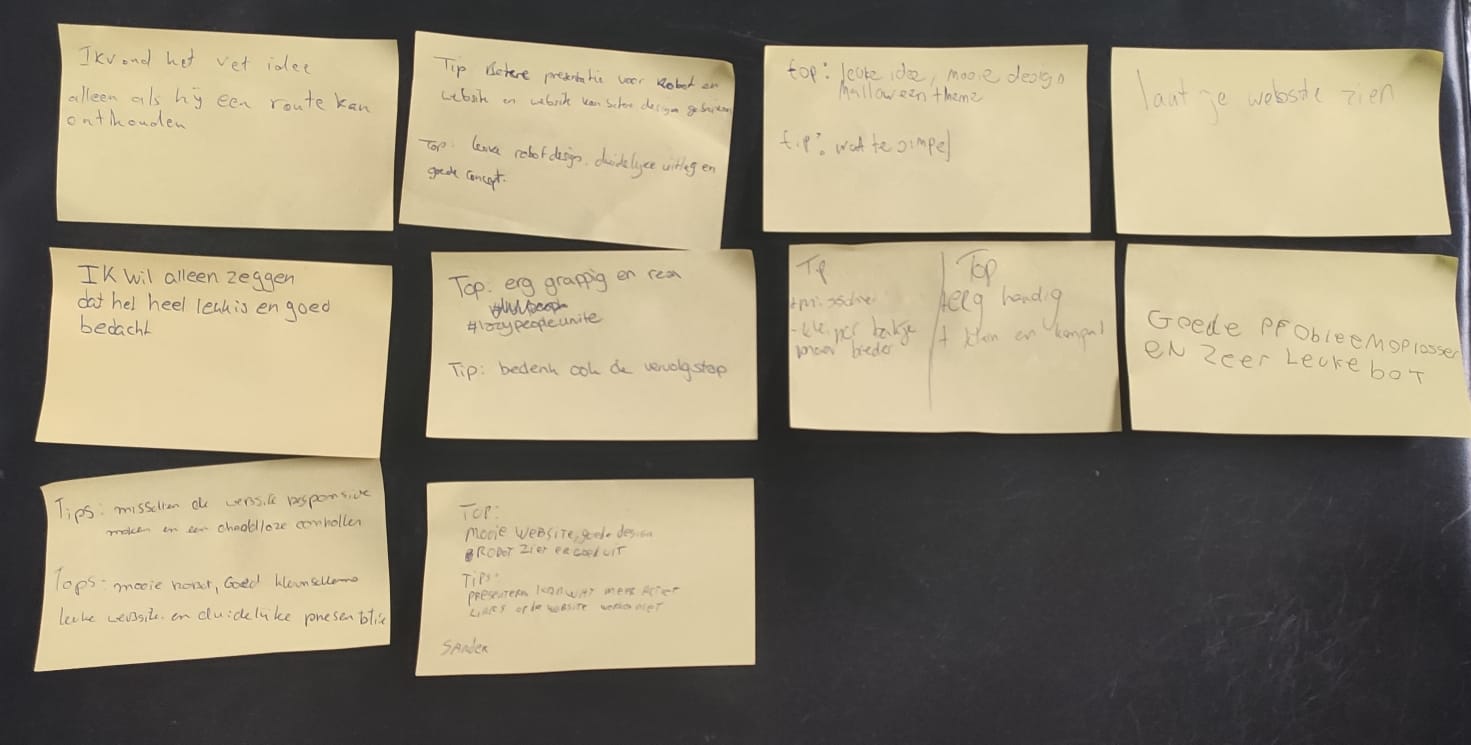 Ik vond het vet idee
alleen als hij een route kan
onthouden
Tip Betere presentatie voor Robot en
website en website kan betere design gebruiken
Top: leuke robot design, duidelijke uitleg en
goede concept.
top: leuke idee, mooie design
Halloween thema
tip: wat te simpel
laat je website zien
IK wil alleen zeggen
dat het heel leuk is en goed
bedacht
Top: erg grappig en
#lazypeopleunite
Tip: bedenk ook de vervolgstap
Tip
per bakje
maar breder
Top
+ erg handig
+ klein en kompal
GOEDE PROBLEEMOPLOSSER
EN ZEER LEUKE BOT
Tips: misschien de website responsive
maken en een draadloze controller
Tops: mooie robot, Goed
leuke website en duidelijke presentatie
TOP:
MOOIE WEBSITE, goede design
ROBOT ZIET ER GOED UIT
TIPS:
PRESENTEREN KON WAT MEER
LINKS OP DE WEBSITE WERKEN NIET
SANDER